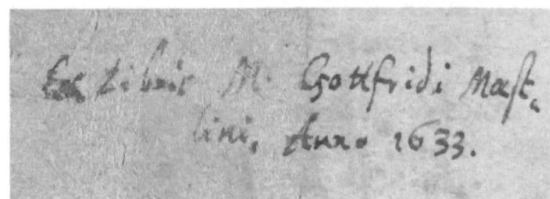 Ex Libris M. Gottfridi Mæst-
lini, Anno 1633.